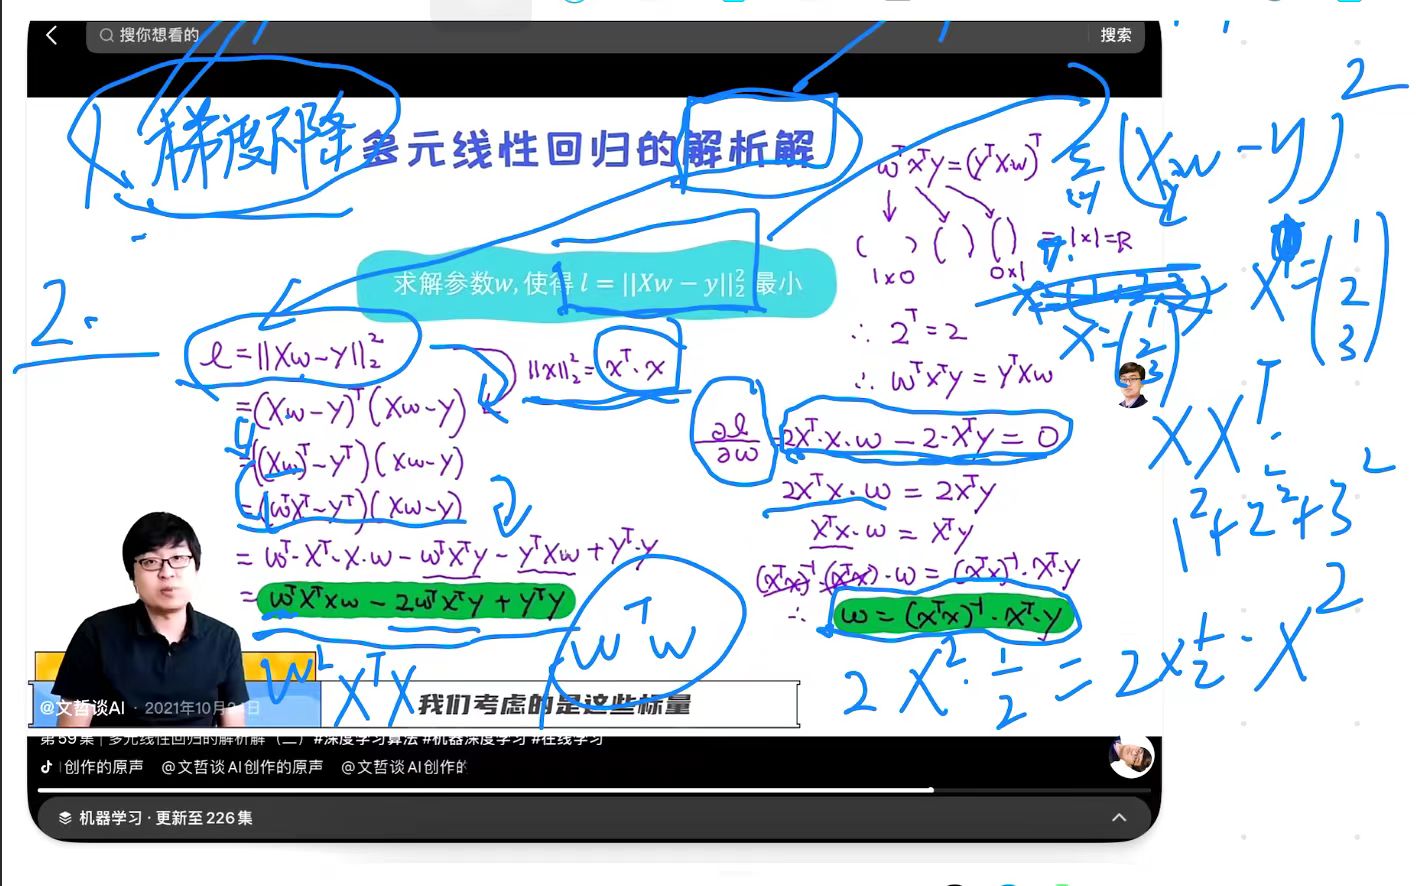 搜你想看的
搜索
1. 梯度下降
多元线性回归的解析解
求解参数w, 使得 l = ||Xw − y||₂² 最小
2.
l = ||Xw−Y||₂²
||x||₂² = xᵀ·x
=(Xw−Y)ᵀ(Xw−Y)
=((Xw)ᵀ−Yᵀ)(Xw−Y)
=(wᵀXᵀ−Yᵀ)(Xw−Y)
= wᵀ·Xᵀ·X·w − wᵀXᵀY − YᵀXw + Yᵀ·Y
= wᵀXᵀXw − 2wᵀXᵀY + YᵀY
wᵀXᵀY = (YᵀXw)ᵀ
( ) ( ) ( ) = 1×1=R
∴ 2ᵀ = 2
∴ wᵀXᵀY = YᵀXw
∂l/∂w = 2Xᵀ·X·w − 2·XᵀY = 0
2XᵀX·w = 2XᵀY
XᵀX·w = XᵀY
(XᵀX)⁻¹·(XᵀX)·w = (XᵀX)⁻¹·Xᵀ·Y
∴ w = (XᵀX)⁻¹·Xᵀ·Y
(Xw − y)²
X = (1 2 3)
X = (1 2 3)
XXᵀ =
1² + 2² + 3²
wᵀw
w² XᵀX
2X²·1/2 = 2×1/2·X²
@文哲谈AI · 2021年10月
我们考虑的是这些标量
第59集 | 多元线性回归的解析解（二）#深度学习算法 #机器深度学习 #在线学习
创作的原声 @文哲谈AI创作的原声 @文哲谈AI创作的
机器学习 · 更新至226集